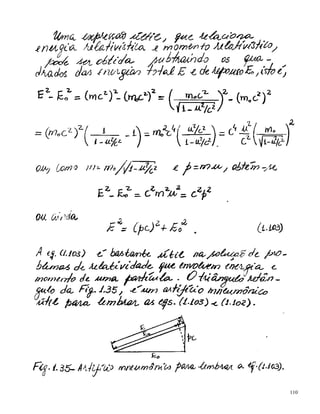 Uma expressão útil, que relaciona
energia relativística e momento relativístico,
pode ser obtida, subtraindo os qua-
drados das energias total E e de repouso E₀, isto é,
E² - E₀² = (mc²)² - (m₀c²)² = (m₀c²/√(1-u²/c²))² - (m₀c²)²
= (m₀c²)² (1/(1-u²/c²) - 1) = m₀²c⁴ (u²/c²/(1-u²/c²)) = c⁴ u²/c² (m₀/√(1-u²/c²))²
ou, como m = m₀/√(1-u²/c²) e p = mu, obtém-se
E² - E₀² = c²m²u² = c²p²
ou ainda
E² = (pc)² + E₀² . (1.103)
A eq. (1.103) é bastante útil na solução de pro-
blemas de relatividade que envolvem energia e
momento de uma partícula. O triângulo retân-
gulo da Fig. 1.35, é um artifício mnemônico
útil para lembrar as eqs. (1.103) e (1.102).
E₀
pc
E₀
Fig. 1.35- Artifício mnemônico para lembrar a eq. (1.103).
110